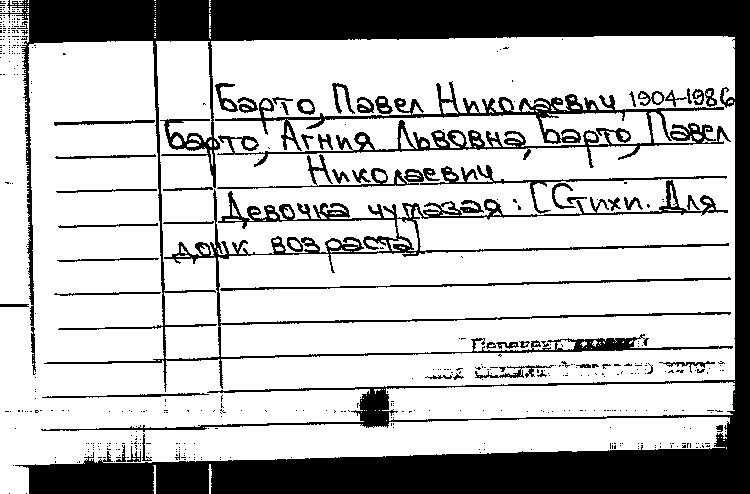 Барто, Павел Николаевич, 1904-1986
Барто, Агния Львовна, Барто, Павел
Николаевич.
Девочка чумазая : [Стихи. Для
дошк. возраста]